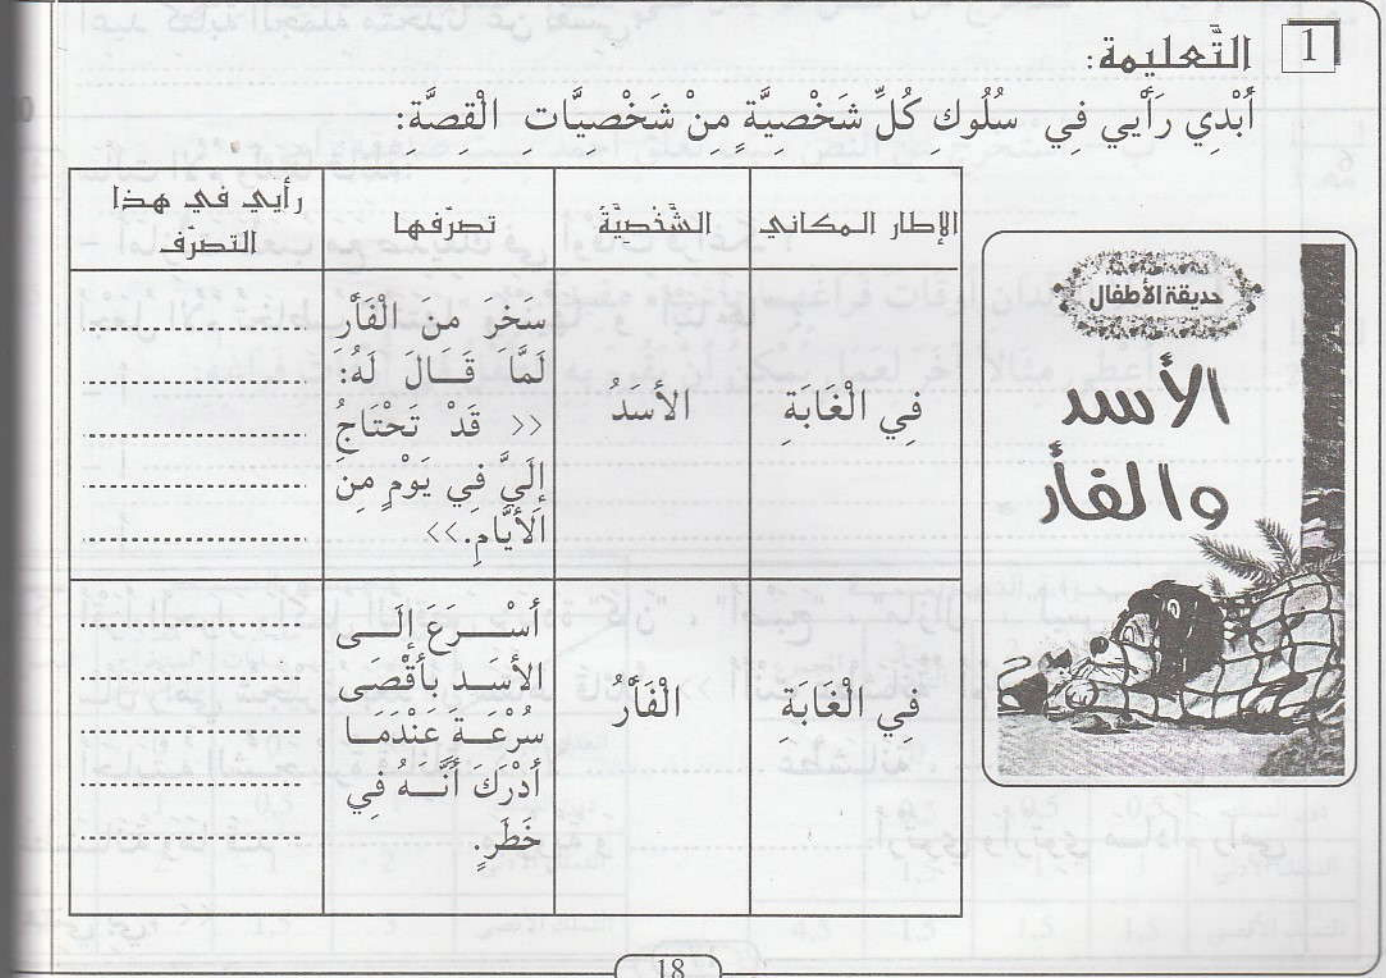 1
التَّعليمة:
أُبْدِي رَأْيِي فِي سُلُوكِ كُلِّ شَخْصِيَّةٍ مِنْ شَخْصِيَّاتِ الْقِصَّة:
حديقة الأطفال
الأسد
والفأر
الإطار المكاني
الشَّخْصِيَّةُ
تصرّفها
رأيي في هذا
التصرّف
فِي الْغَابَةِ
الأسَدُ
سَخَرَ مِنَ الْفَأْرِ
لَمَّا قَالَ لَهُ:
<< قَدْ تَحْتَاجُ
إِلَيَّ فِي يَوْمٍ مِنَ
الأَيَّامِ.>>
فِي الْغَابَةِ
الْفَأْرُ
أَسْرَعَ إِلَى
الأَسَدِ بِأَقْصَى
سُرْعَةٍ عَنْدَمَا
أَدْرَكَ أَنَّهُ فِي
خَطَرٍ.
18